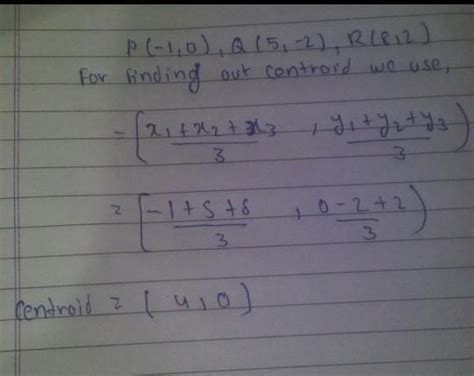 P(-1,0), Q(5,-2), R(8,2)
For finding out centroid we use,
= (x₁+x₂+x₃/3 , y₁+y₂+y₃/3)
= (-1+5+8/3 , 0-2+2/3)
Centroid = (4,0)